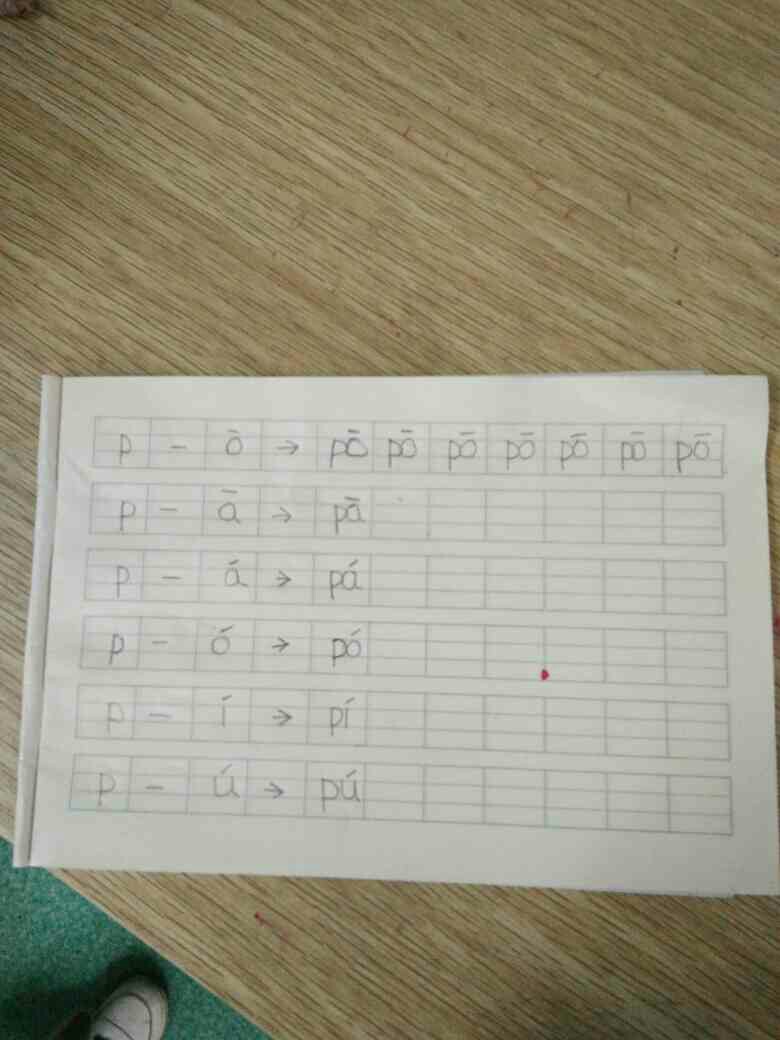 p - ō → pō pō pō pō pō pō pō
p - ā → pā
p - á → pá
p - ó → pó
p - í → pí
p - ú → pú